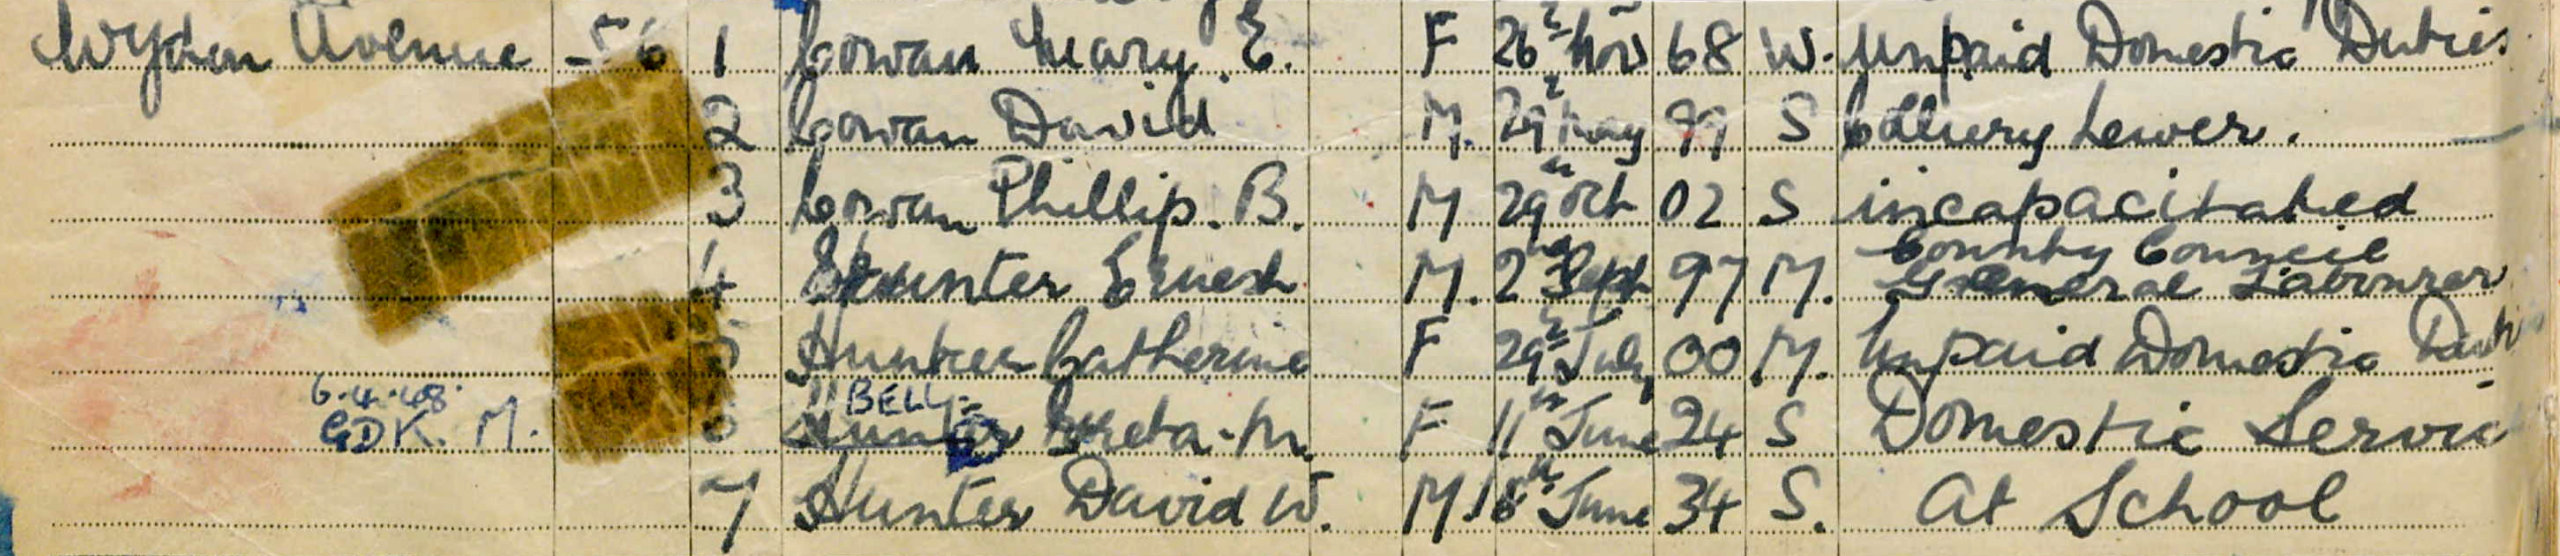 Avenue 56 1 Cowan Mary. E. F 26th Nov 68 W. Unpaid Domestic Duties
2 Cowan David M. 29th May 99 S Colliery Hewer.
3 Cowan Phillip. B. M 29th Oct 02 S incapacitated
County Council
4 Hunter Ernest M. 2nd Sept 97 M. General Labourer
5 Hunter Catherine F 29th July 00 M. Unpaid Domestic
6.4.48. BELL
GDK. M. 6 Hunter Greta. M. F 11th June 24 S Domestic Servic
7 Hunter David W. M. 16th June 34 S. At School